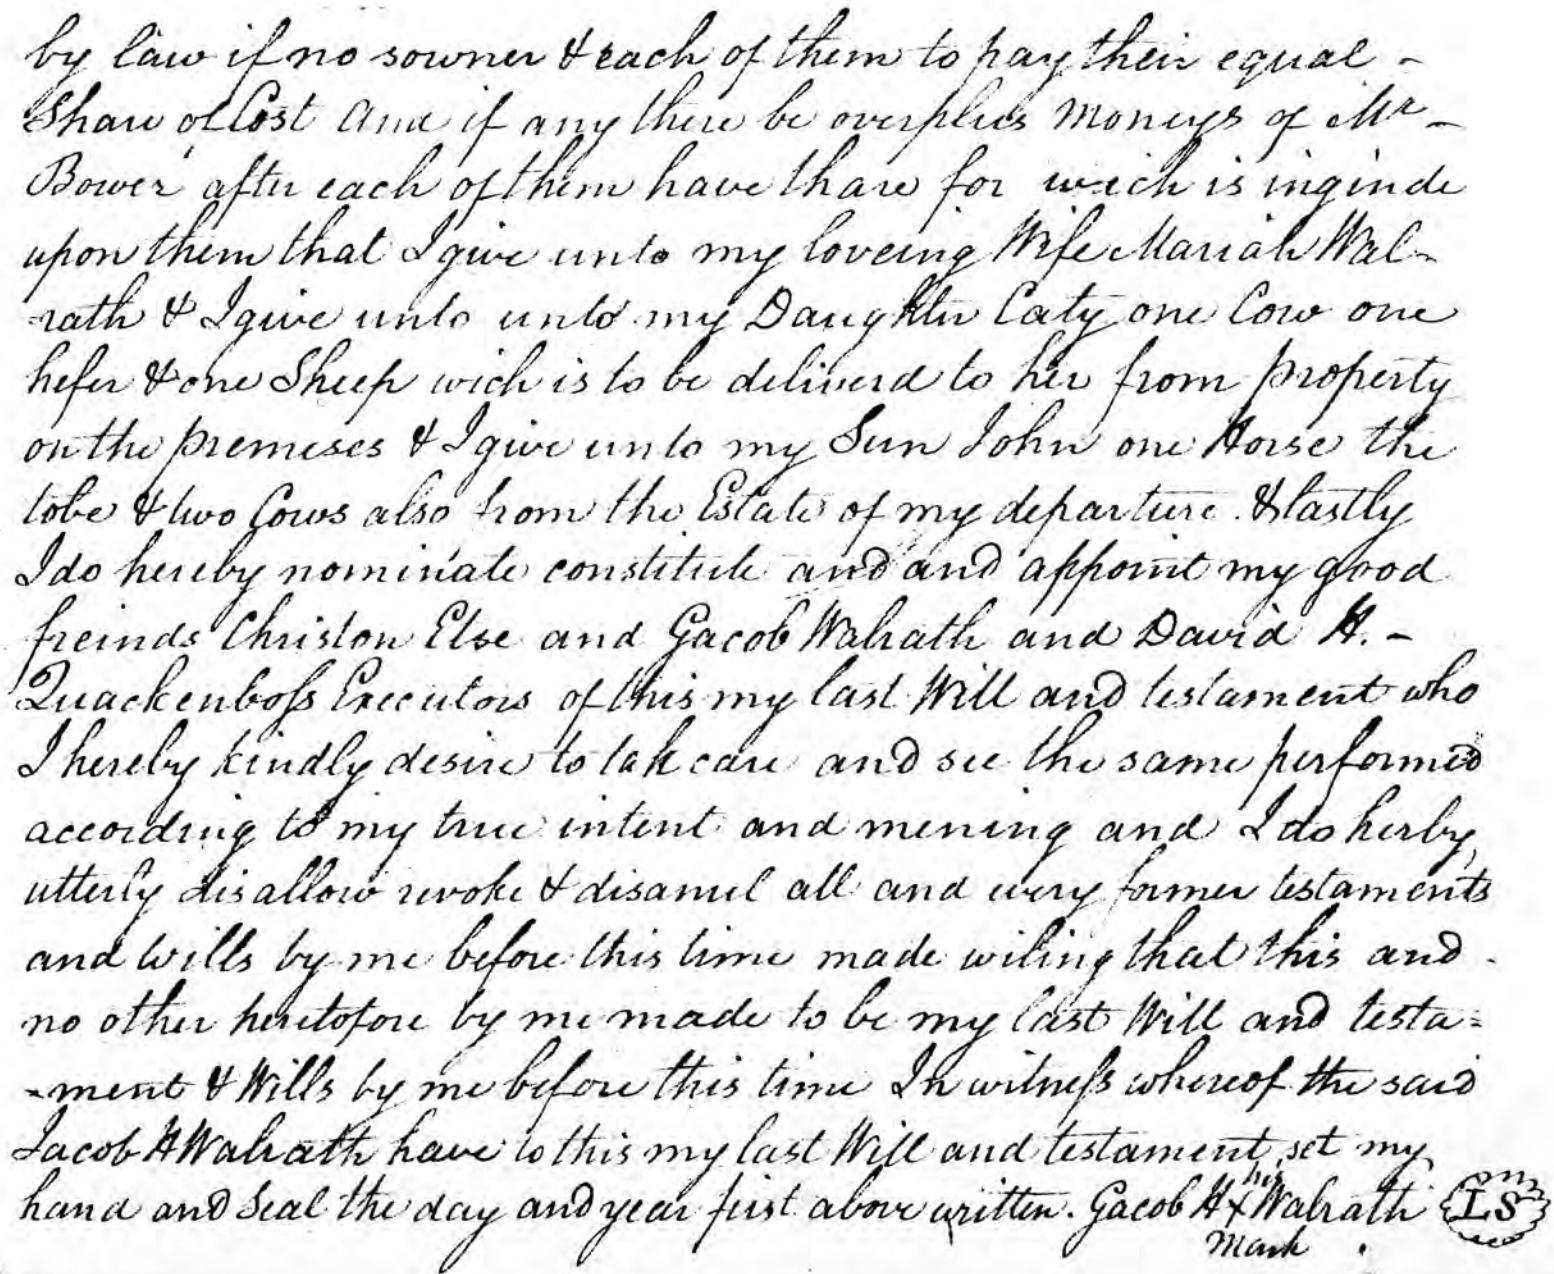 by law if no sowner & each of them to pay their equal -
Share of Cost And if any there be overplus Moneys of Mr -
Bower after each of them have thare for wich is inginde
upon them that I give unto my loveing Wife Mariah Wal-
rath & I give unto unto my Daughter Caty one Cow one
hefer & one Sheep wich is to be deliverd to her from property
on the premeses & I give unto my Sun John one Horse the
tobe & two Cows also from the Estate of my departure. & lastly
I do hereby nominate constitute and and appoint my good
freinds Christon Else and Gacob Walrath and David H. -
Quackenboss Executors of this my last Will and testament who
I hereby kindly desire to tak care and see the same performed
according to my true intent and mening and I do herby
utterly disallow revoke & disanul all and every former testaments
and Wills by me before this time made wiling that this and -
no other heretofore by me made to be my last Will and testa=
-ment & Wills by me before this time In witness whereof the said
Jacob H Walrath have to this my last Will and testament set my
hand and Seal the day and year first above written. Gacob H his X Walrath LS
Mark